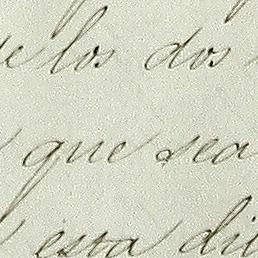 los dos
que sea
esta